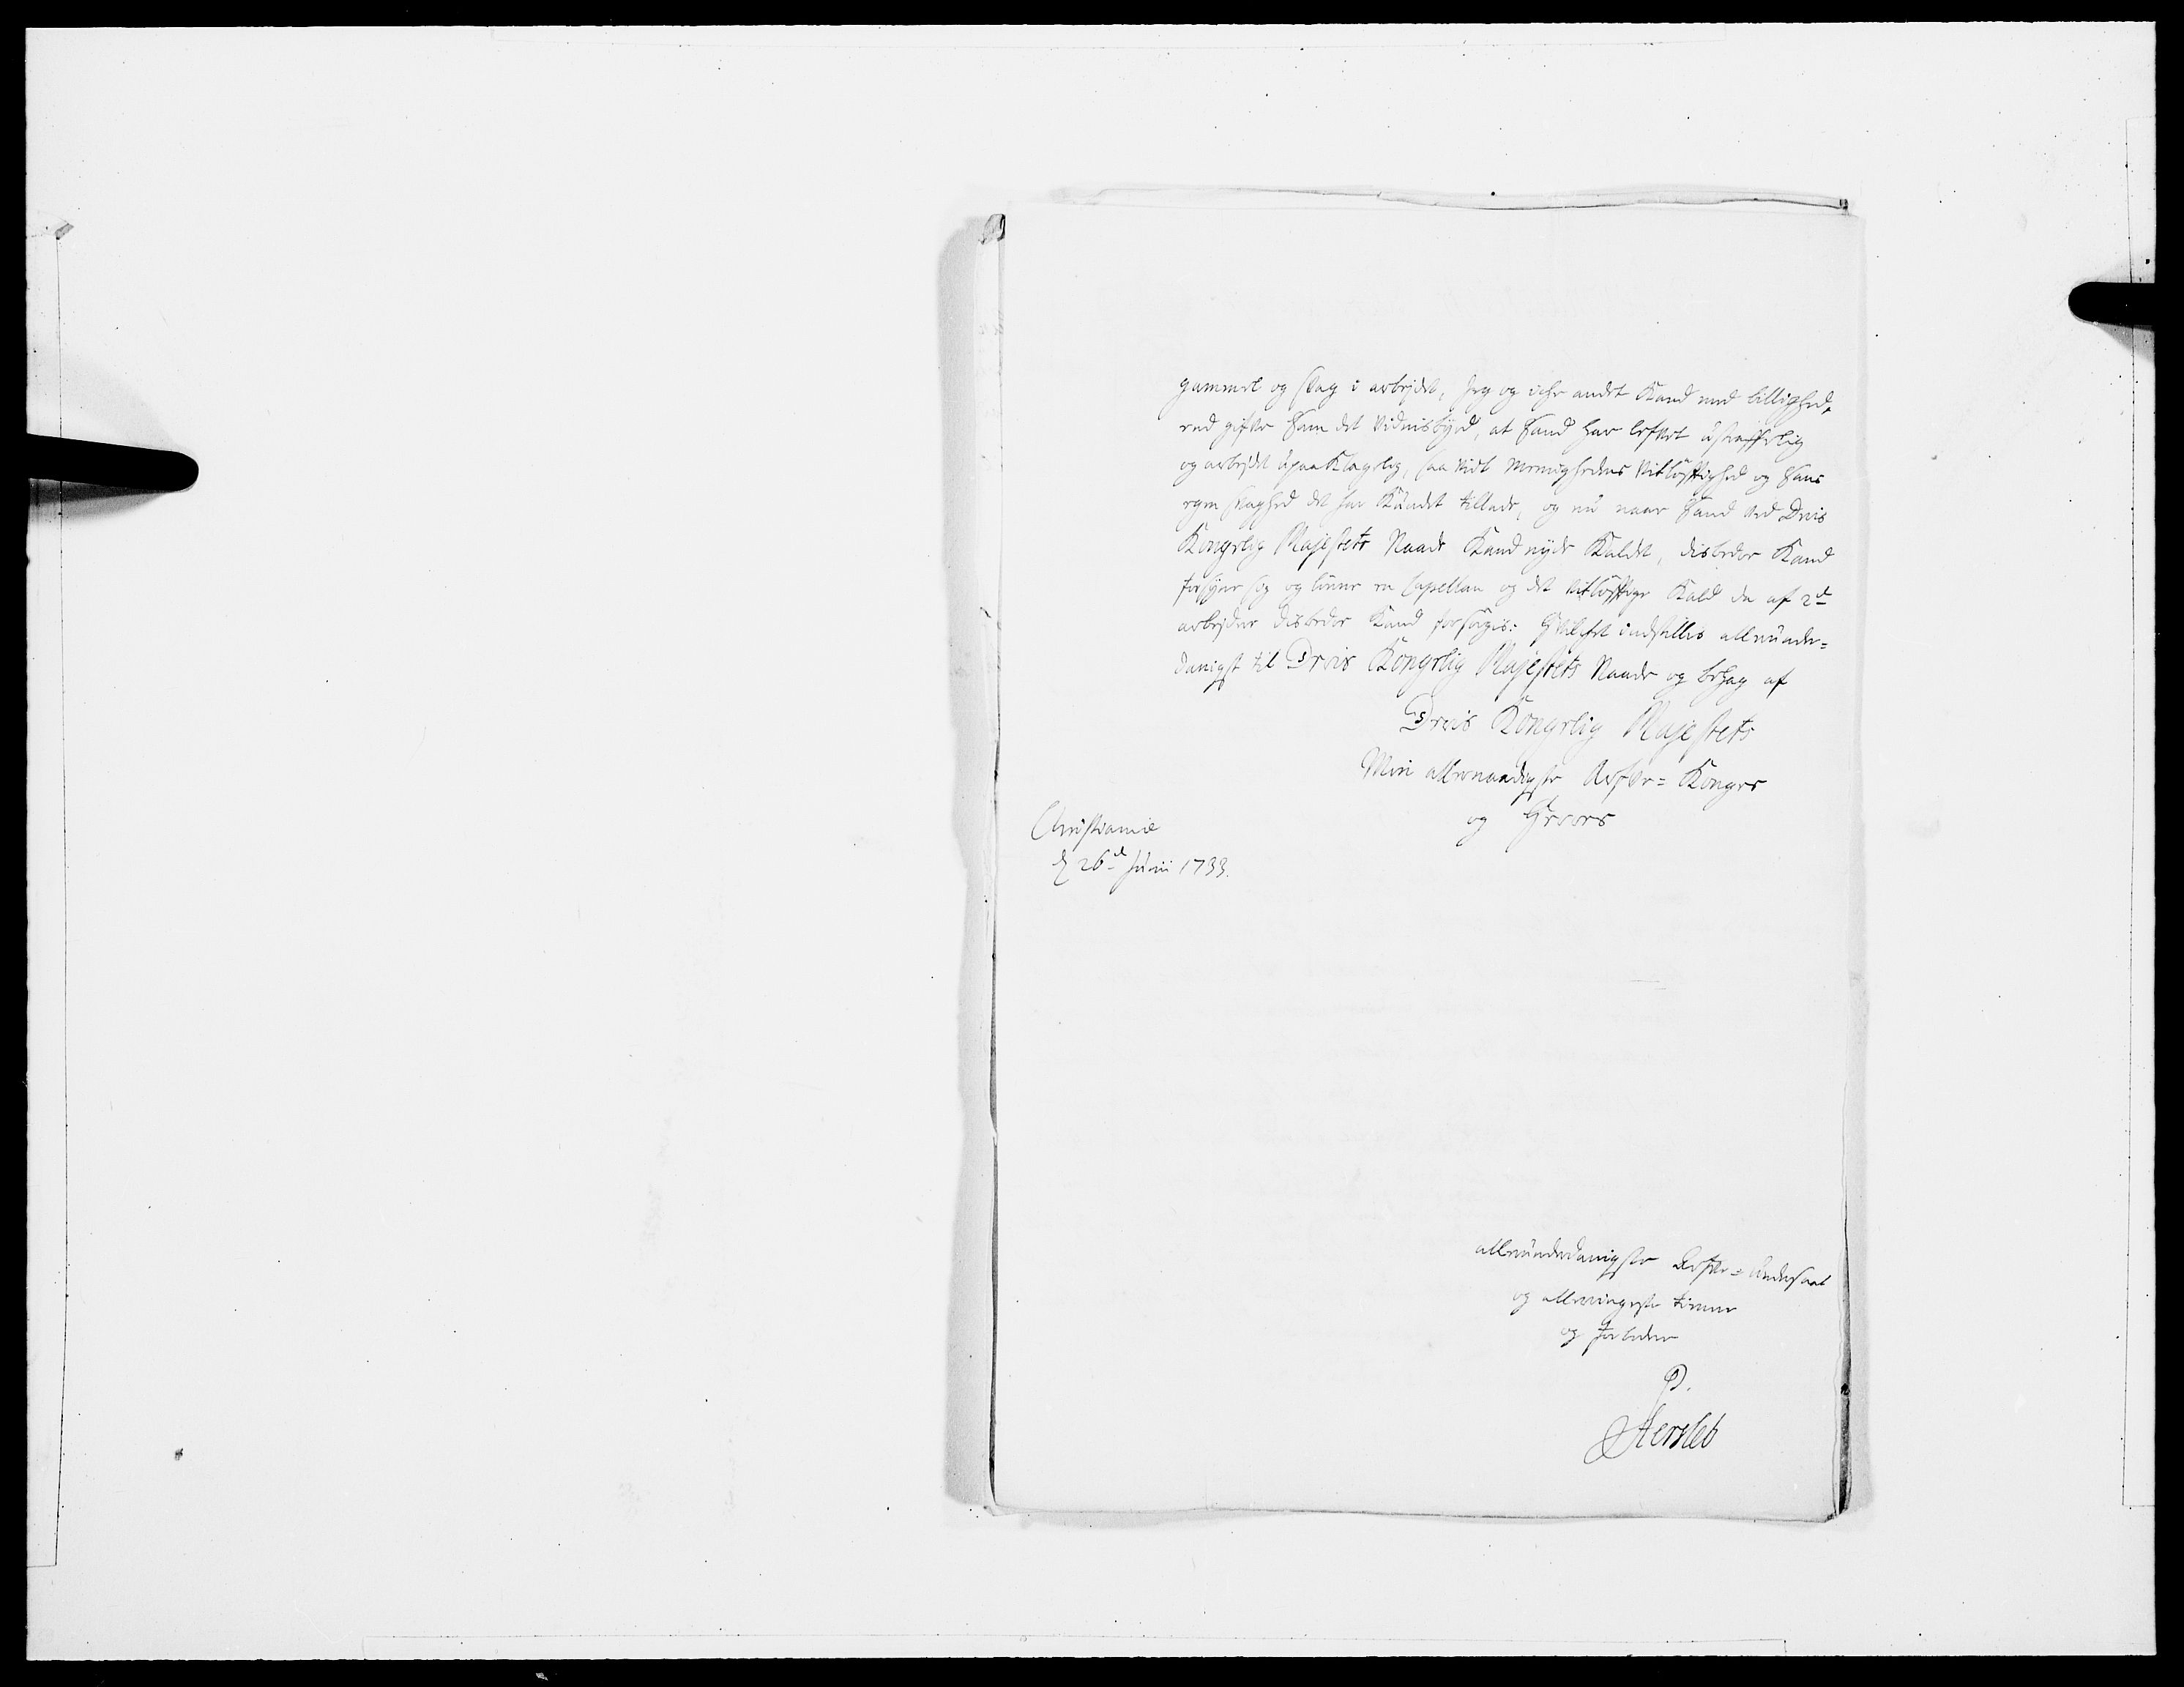 gammel og svag i arbejdet, Jeg og icke andet Kand med billighed,
end gifve ham det vidnisbyrd, at hand har lefvet ustraffelig
og arbejdet upaaklagelig, saa vidt Menighedens vitløftighed og hans
egen svaghed det har kundet tillade, og nu naar hand ved Deris
Kongelig Majestets Naade Kand nyde Kaldet, disbedre Kand
forsyne sig og lønne en Capellan og det vitløftige Kald da af 2de
arbejdere disbedre Kand forsørgis: Hvilket indstillis allerunder=
danigst til Deris Kongelig Majestets Naade og behag af
Deris Kongelig Majestets
Min allernaadigste Arfve=Konges
og Herres
Christiania
d 26de Junii 1733.
allerunderdanigste Arfve=Undersaat
og allerringeste tiener
og forbeder
P.
Hersleb